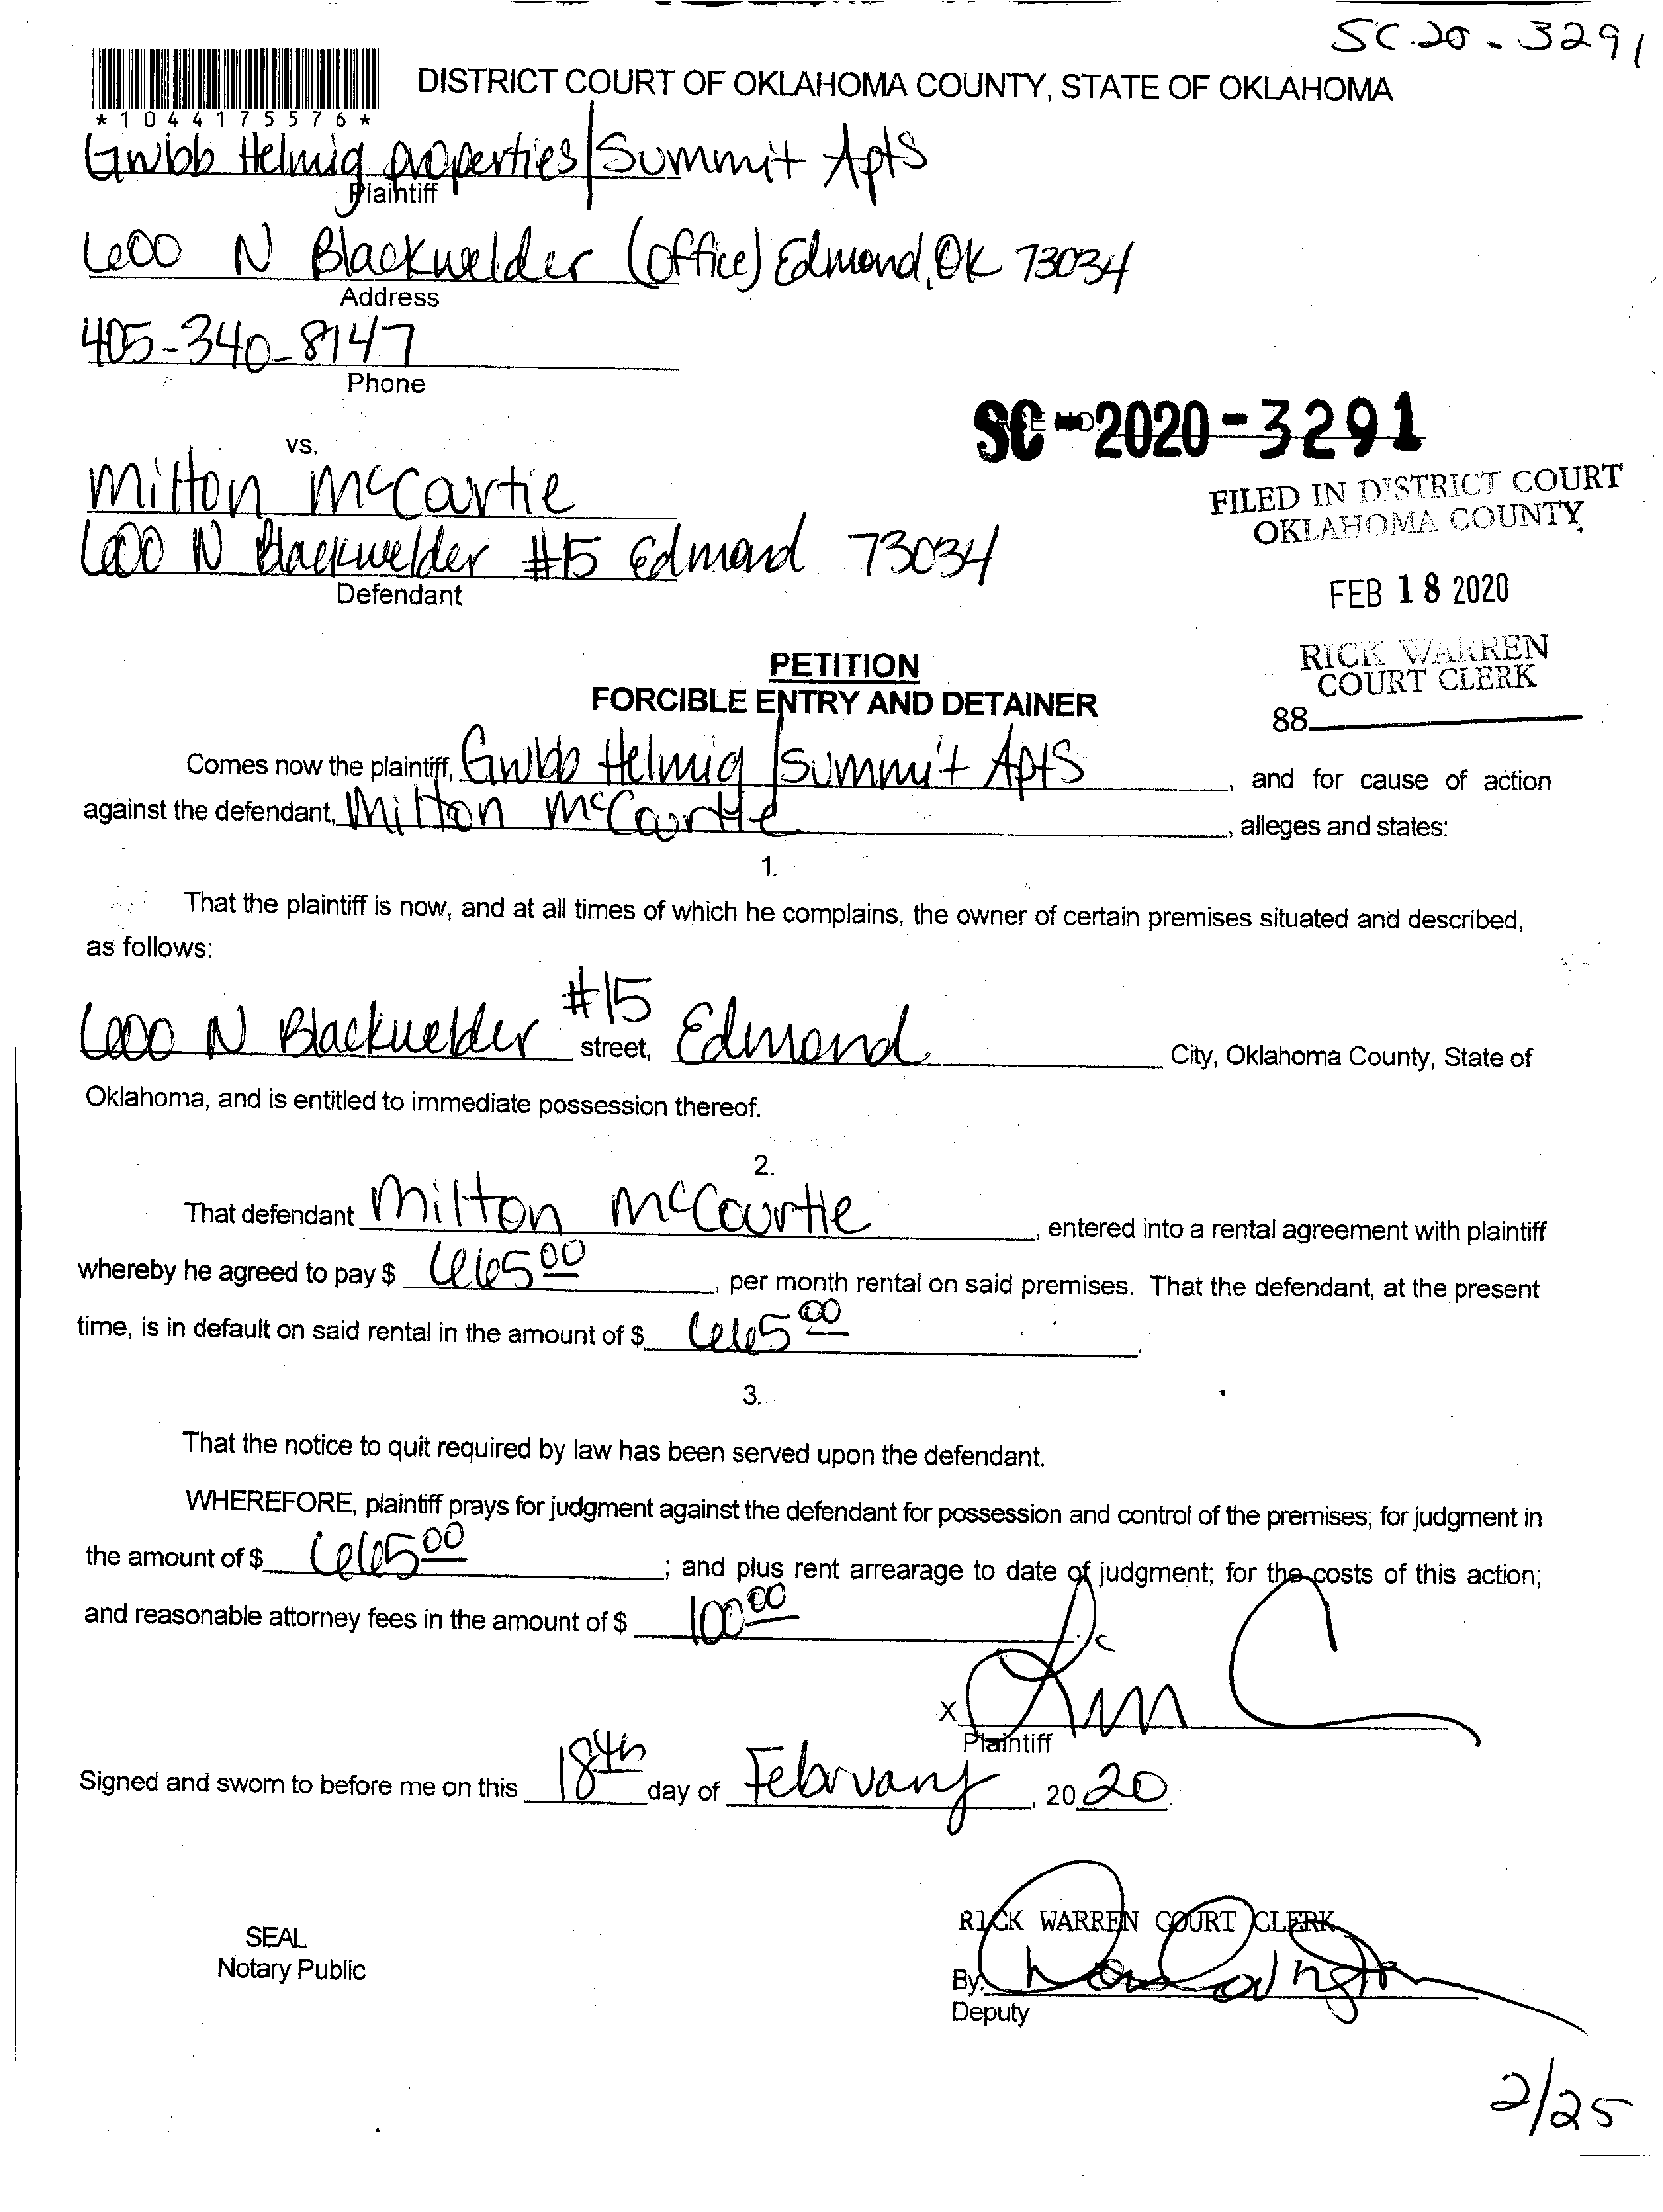 SC-20-3291
*1044175576*
DISTRICT COURT OF OKLAHOMA COUNTY, STATE OF OKLAHOMA
Helmig properties/Summit Apts
Plaintiff
600 N Blackwelder (office) Edmond, OK 73034
Address
405-340-8147
Phone
SC-2020-3291
vs.
Milton McCartie
600 N Blackwelder #15 Edmond 73034
Defendant
FILED IN DISTRICT COURT
OKLAHOMA COUNTY
FEB 18 2020
RICK WARREN
COURT CLERK
88
PETITION
FORCIBLE ENTRY AND DETAINER
Comes now the plaintiff, Helmig/Summit Apts, and for cause of action
against the defendant, Milton McCartie, alleges and states:
1.
That the plaintiff is now, and at all times of which he complains, the owner of certain premises situated and described,
as follows:
600 N Blackwelder #15 street, Edmond City, Oklahoma County, State of
Oklahoma, and is entitled to immediate possession thereof.
2.
That defendant Milton McCartie, entered into a rental agreement with plaintiff
whereby he agreed to pay $ 665 00, per month rental on said premises. That the defendant, at the present
time, is in default on said rental in the amount of $ 665 00.
3.
That the notice to quit required by law has been served upon the defendant.
WHEREFORE, plaintiff prays for judgment against the defendant for possession and control of the premises; for judgment in
the amount of $ 665 00; and plus rent arrearage to date of judgment; for the costs of this action;
and reasonable attorney fees in the amount of $ 100 00
X
Plaintiff
Signed and sworn to before me on this 18th day of February, 20 20.
SEAL
Notary Public
RICK WARREN COURT CLERK
By:
Deputy
2/25